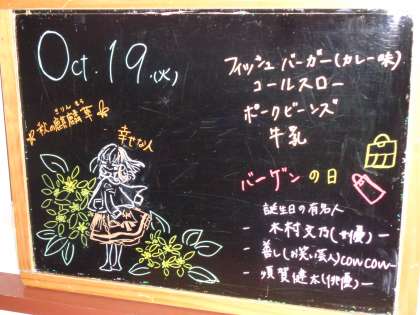 Oct. 19.(火)
フィッシュバーガー(カレー味)
コールスロー
ポークビーンズ
牛乳
きりん そう
秋の麒麟草
幸せな人
バーゲンの日
誕生日の有名人
- 木村文乃(女優) -
- 善し(お笑い芸人)COWCOW -
- 須賀健太(俳優) -